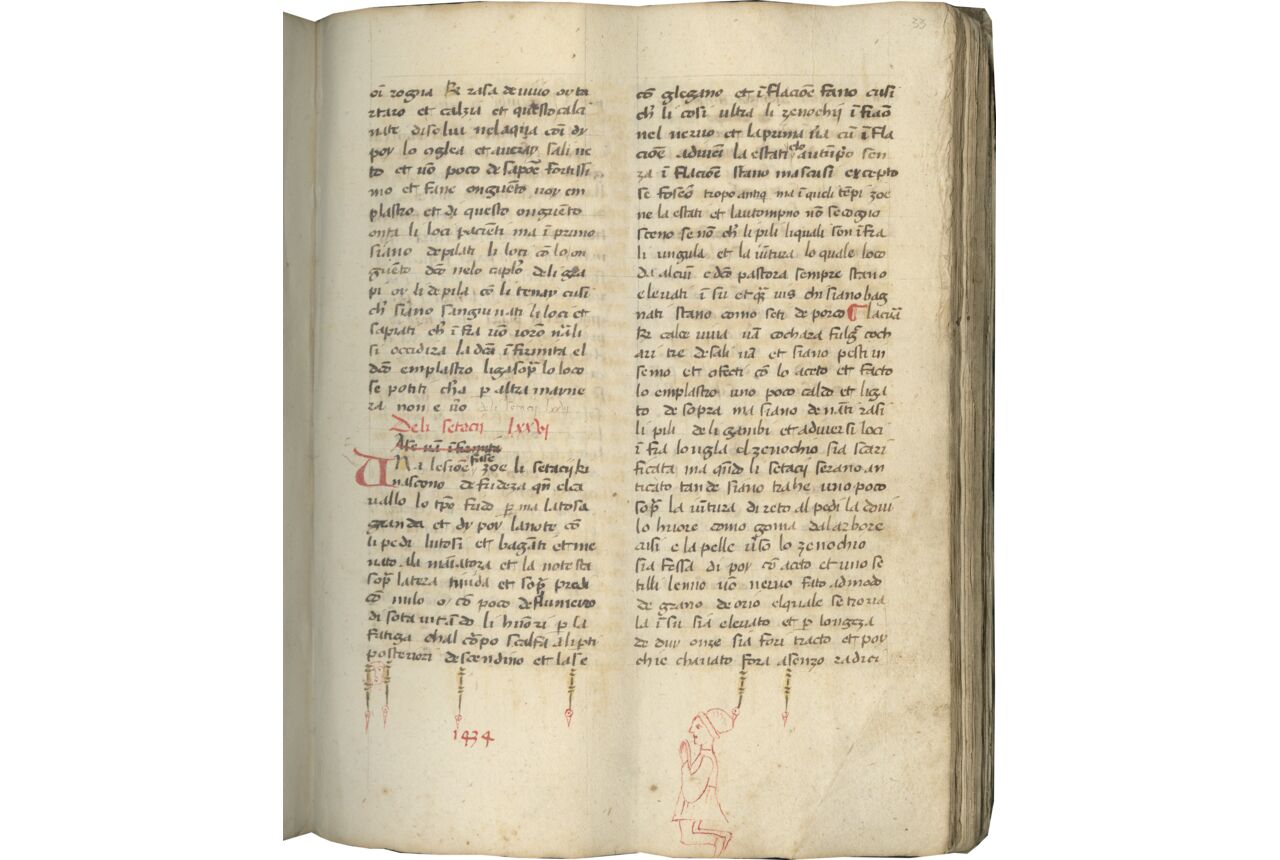 33
oi rogna Rx rasa de uino or ta
rtaro et calzia et questo calci
nate disolui nel aqua com dy
poy lo oglea et aueray sali ne
to et uo poco de sapoe fortissi
mo et fane onguēto uoy em
plastro et di questo onguēto
onta li loci paciēti ma ī primo
siano depilati li loci cō lo on
guēto dco nelo caplo deli gra
pi or li depila cō li tenay cusi
ch siano sanguinati li loci et
sapiati ch ī fra
si occidira la dcā ī firmita el
dco emplastro liga sopra lo loco
se potiti cha p altra mayne
ra non e uo
Deli setacii lxxvj
Na lesione fasse zoe li setacij ki
nascono de frideza qn el ca
uallo lo tpo frido p mala tosa
granda et dy poy la note cō
li pedi lutosi et bagnāti et me
nato ali maniatora et la note sta
sopra latera nuda et sopra predi
cō nulo o cō poco de
di sota uitādo li huori p la
fatiga chal cōpo scalfa ali pti
posteriori descendino et la se
1434
cō glegano et īflacioē fano cusi
ch li cosi ultra li zenochij īfiaō
nel neruo et la prima uā cū īfla
cioē adiuen la estati elo autūpo sen
za īflacioē stano mascusi excepto
se foseō tropo antiq ma ī queli tēpi zoe
ne la estati et lautompno nō se cogno
sceno se nō ch li pili li quali son īfra
li ungula et la iūtura lo quale loco
da alcuī e dco pastora sempre stano
eleuati ī su et qī uis chi siano bag
nati stano como seti de porco La cura
Rx calce uiua uā cochara fulig coch
ari tre de sali uā et siano pesti in
semo et cfecti cō lo aceto et facto
lo emplastro uno poco caldo et liga
to de sopra ma siano denāti rasi
li pili deli gambi et aduersi loci
ī fra longla el zenochio sia scari
ficata ma quādo li setacij serano an
ticato tande siano trahe uno poco
sopra la iūtura direto al pedi la doui
lo huore como goma dal arbore
cusi e la pelle uso lo zenochio
sia fessa di poy cō aceto et uno se
tilli lenno uō neruo fato ad modo
de grano de orio el quale se troua
la ī su sia eleuato et p longeza
de duy onze sia fori tracto et poy
chie chauato fora asenzo radici